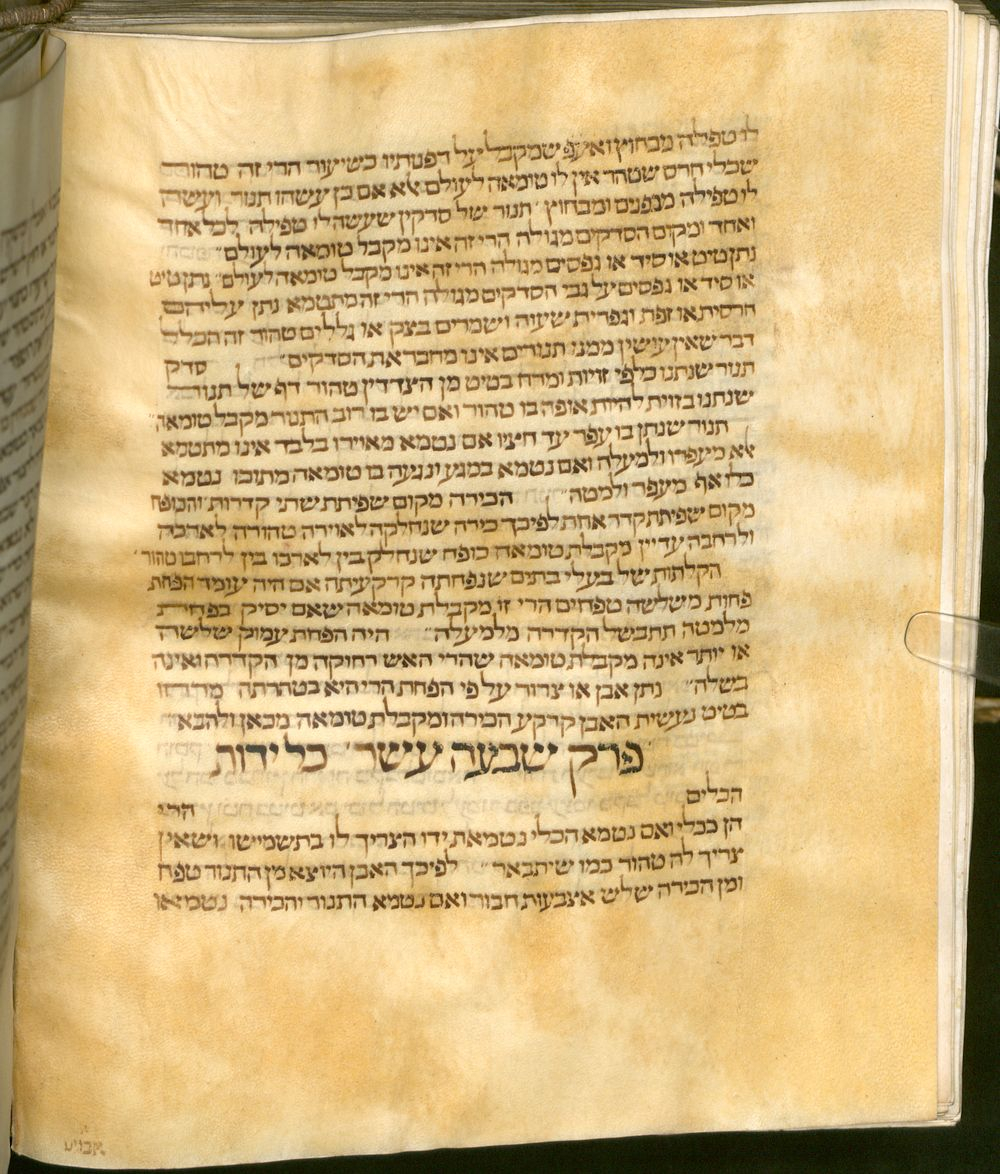 לו טפלה מבחוץ ואיעפ שמקבל על דפנותיו כשיעור הרי זה טהור
שכלי חרס שטהר אין לו טומאה לעולם אלא אם כן עשהו תנור ועשה
לו טפילה מבפנים ומבחוץ תנור של סדקין שעשה לו טפילה לכל אחד
ואחד ומקום הסדקים מגולה הרי זה אינו מקבל טומאה לעולם
נתן טיט או סיד או גפסים מגולה הרי זה אינו מקבל טומאה לעולם נתן טיט
או סיד או גפסים על גבי הסדקים מגולה הרי זה מתטמא נתן עליהם
חרסית או זפת וגפרית שעוה ושמרים בצק או גללים טהור זה הכלל
דבר שאין עושין ממנו תנורים אינו מחבר את הסדקים סדק
תנור שנתנו כלפי זויות ומרח בטיט מן הצדדין טהור דף של תנור
שנתנו בזוית להיות אופה בו טהור ואם יש בו רוב התנור מקבל טומאה
תנור שנתן בו עפר עד חציו אם נטמא מאוירו בלבד אינו מתטמא
אלא מעפרו ולמעלה ואם נטמא במגע ונגעה בו טומאה מתוכו נטמא
כלו אף מעפר ולמטה הכירה מקום שפיתת שתי קדרות והכופח
מקום שפיתת קדר אחת לפיכך כירה שנחלקה לאוירה טהורה לארכה
ולרחבה עדיין מקבלת טומאה כופח שנחלק בין לארכו בין לרחבו טהור
הקלתות של בעלי בתים שנפחתה קרקעיתה אם היה עומד הפחת
פחות משלשה טפחים הרי זו מקבלת טומאה שאם יסיק בפחות
מלמטה תתבשל הקדרה מלמעלה היה הפחת עמוק שלישה
או יותר אינה מקבלת טומאה שהרי האש רחוקה מן הקדרה ואינה
בשלה נתן אבן או צרור על פי הפחת הרי היא בטהרתה מרחו
בטיט נעשית האבן קרקע הכירה ומקבלת טומאה מכאן ולהבא
פרק שבעה עשר כל ידות
הכלים הרי
הן ככלי ואם נטמא הכלי נטמאת ידו הצריך לו בתשמישו ושאין
צריך לה טהור כמו שיתבאר לפיכך האבן היוצא מן התנור טפח
ומן הכירה שלש אצבעות חבור ואם נטמא התנור והכירה נטמאו